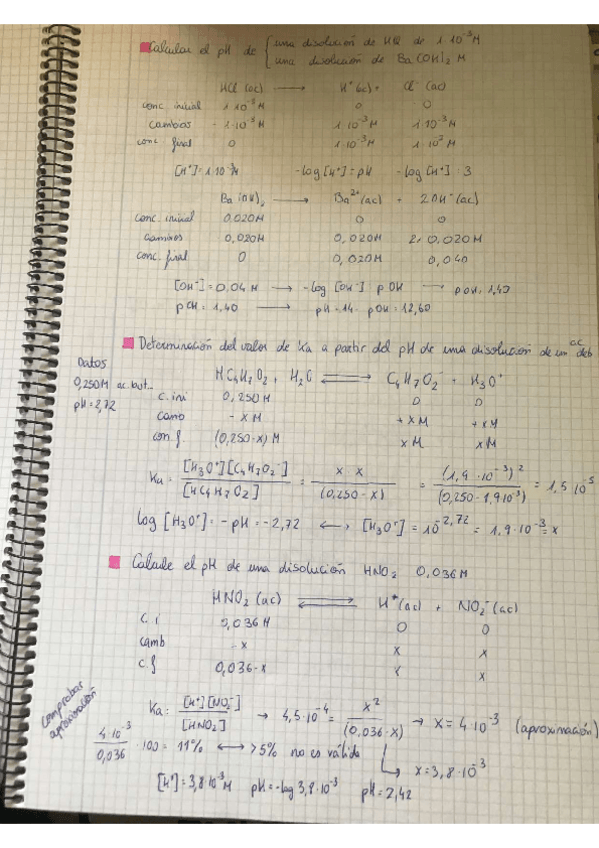 Calcular el pH de { una disolución de HCl de 1·10⁻³M
una disolución de Ba(OH)₂ M
HCl (ac) → H⁺(ac) + Cl⁻ (ac)
conc inicial 1·10⁻³M 0 0
cambios -1·10⁻³M 1·10⁻³M 1·10⁻³M
conc final 0 1·10⁻³M 1·10⁻³M
[H⁺]=1·10⁻³M -log[H⁺]=pH -log[H⁺]:3
Ba(OH)₂ → Ba²⁺(ac) + 2OH⁻(ac)
conc. inicial 0,020M 0 0
Cambios 0,020M 0,020M 2·0,020M
Conc. final 0 0,020M 0,040
[OH⁻]=0,04M → -log[OH⁻] pOH → pOH: 1,40
pOH=1,40 → pH=14- pOH=12,60
Determinación del valor de Ka a partir del pH de una disolución de un ac deb
Datos
0,250M ac.but...
pH=2,72
HC₄H₇O₂, H₂O ⇌ C₄H₇O₂⁻ + H₃O⁺
c.ini 0,250M 0 0
Camb -xM +xM +xM
con.f. (0,250-x)M xM xM
Ka= [H₃O⁺][C₄H₇O₂⁻] / [HC₄H₇O₂] = x x / (0,250-x) = (1,9·10⁻³)² / (0,250-1,9·10⁻³) = 1,5·10⁻⁵
log[H₃O⁺]=-pH=-2,72 ↔ [H₃O⁺]=10⁻²,⁷²=1,9·10⁻³=x
Calcule el pH de una disolución HNO₂ 0,036M
HNO₂(ac) ⇌ H⁺(ac) + NO₂⁻(ac)
c.i 0,036M 0 0
camb -x x x
c.f 0,036-x x x
Comprobar aproximación
Ka: [H⁺][NO₂⁻] / [HNO₂] → 4,5·10⁻⁴ = x² / (0,036-x) → x=4·10⁻³ (aproximación)
4·10⁻³ / 0,036 ·100=11% ↔ >5% no es válida
x=3,8·10⁻³
[H⁺]=3,8·10⁻³M pH=-log 3,8·10⁻³ pH=2,42